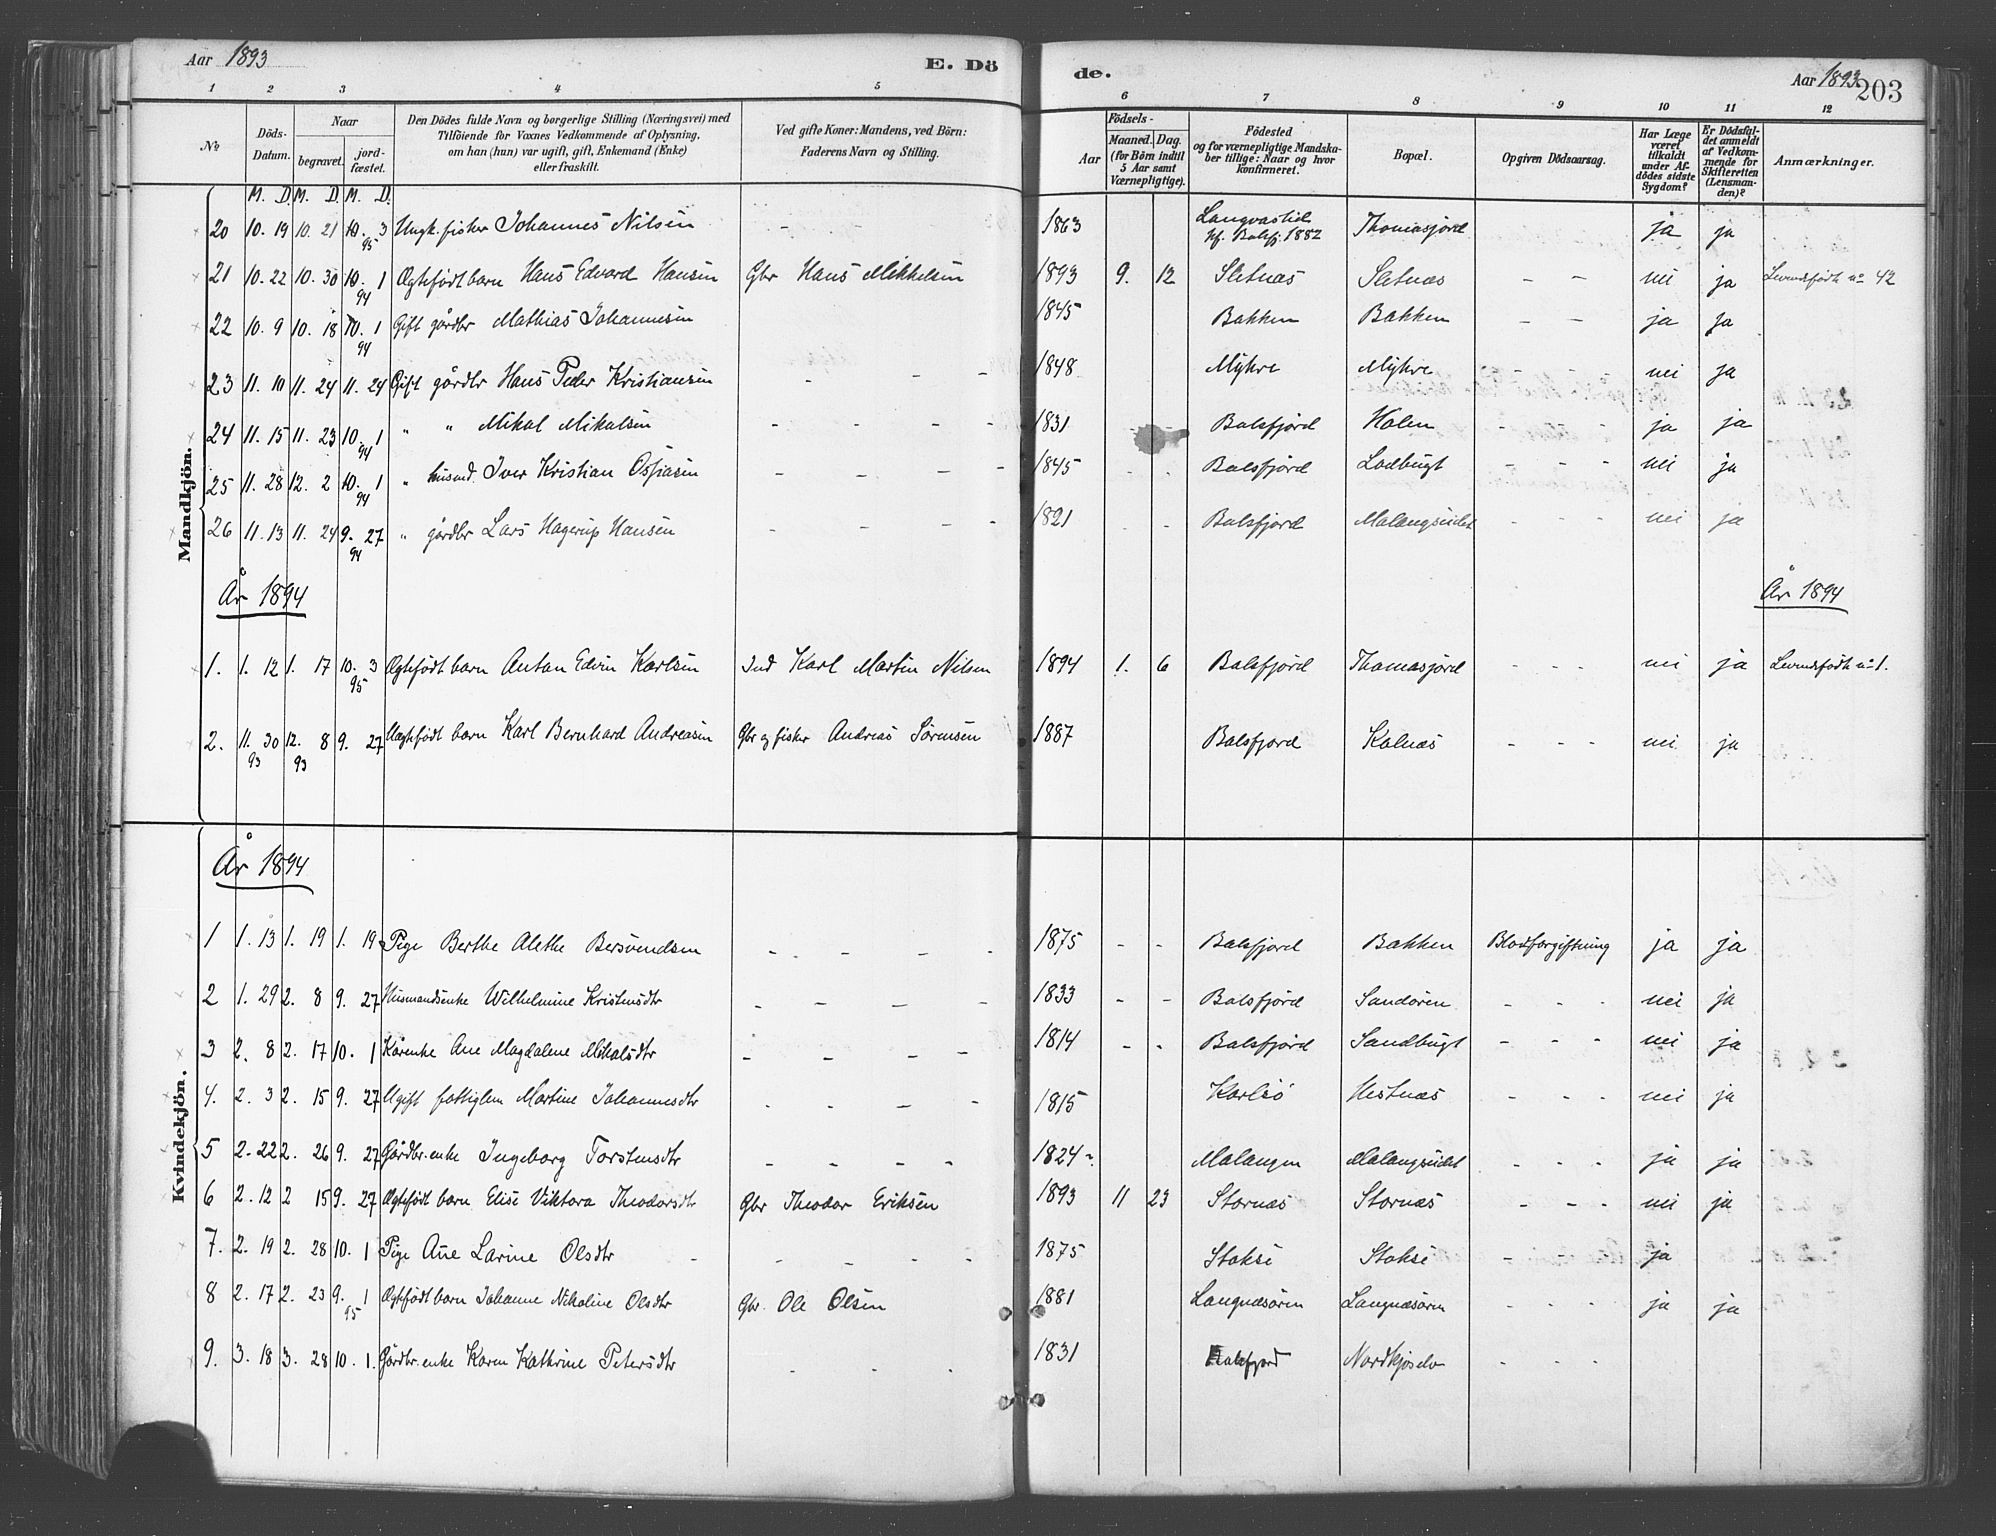 Aar 1893 E. Dö
de. Aar 1893 203
1 2 3 4 5
6 7 8 9 10 11 12
No Döds-Datum. Naar begravet. jord-fæstet. Den Dödes fulde Navn og borgerlige Stilling (Næringsvei) med Tilföiende for Voxnes Vedkommende af Oplysning, om han (hun) var ugift, gift, Enkemand (Enke) eller fraskilt. Ved gifte Koner: Mandens, ved Börn: Faderens Navn og Stilling.
Aar Födsels- Maaned. Dag. (for Börn indtil 5 Aar samt Værnepligtige). Födested og for værnepligtige Mandskaber tillige: Naar og hvor konfirmeret. Bopæl. Opgiven Dödsaarsag. Har Læge været tilkaldt under Afdödes sidste Sygdom? Er Dödsfaldet anmeldt af Vedkommende for Skifteretten (Lensmanden)? Anmærkninger.
M. D. M. D. M. D.
Mandkjön.
20 10. 19 10. 21 10. 3 95 Ungk. fisker Johannes Nilsen - - - 1863 Langvastid kf. Balsfj. 1882 Thomasjord ja ja
21 10. 22 10. 30 10. 1 94 Ægtefödt barn Hans Edvard Hansen Gbr Hans Mikkelsen 1893 9. 12 Sletnæs Sletnæs - - nei ja Levendefödte no 42
22 10. 9 10. 18 10. 1 94 Gift gårdbr Mathias Johannesen 1845 Bakken Bakken - - ja ja
23 11. 10 11. 24 11. 24 Gift gårdbr Hans Peder Kristiansen - - - 1848 Mykre Mykre - - - nei ja
24 11. 15 11. 23 10. 1 94 " " Mikal Mikalsen - - - - 1831 - Balsfjord Holen - - - ja ja
25 11. 28 12. 2 10. 1 94 " husmd. Iver Kristian Osfiasen - - - - 1845 - - Balsfjord Lodbugt - - - nei ja
26 11. 13 11. 24 9. 27 94 " gårdbr Lars Hagerup Hansen - - - - 1821 - - Balsfjord Malangseidet - - - nei ja
År 1894 År 1894
1. 1. 12 1. 17 10. 3 95 Ægtefödt barn Anton Edvin Karlsen Ind Karl Martin Nilsen 1894 1. 6 Balsfjord Thomasjord - - - nei ja Levendefödte no 1.
2. 11. 30 93 12. 8 93 9. 27 Uægtefödt barn Karl Bernhard Andreasen Gbr og fisker Andreas Sörensen 1887 Balsfjord Kolnæs - - - nei ja
Kvindekjön.
År 1894
1 1. 13 1. 19 1. 19 Pige Berthe Alethe Bersvendsen - - - - 1875 - - Balsfjord Bakken Blodforgiftning ja ja
2 1. 29 2. 8 9. 27 Husmandsenke Wilhelmine Kristensdtr - - - - 1833 - - Balsfjord Sandören - - - nei ja
3 2. 8 2. 17 10. 1 Kårenke Ane Magdalene Mikalsdtr - - - - 1814 - - Balsfjord Sandbugt - - - nei ja
4. 2. 3 2. 15 9. 27 Ugift fattiglem Martine Johannesdtr - - - - 1815 Karlsö Hestnæs - - - nei ja
5 2. 22 2. 26 9. 27 Gårdbr. enke Ingeborg Torstensdtr - - - - 1824 Malangen Malangseidet - - - ja ja
6 2. 12 2 15 9. 27 Ægtefödt barn Elise Viktora Theodorsdtr Gbr Theodor Eriksen 1893 11 23 Stornæs Stornæs - - - nei ja
7. 2. 19 2. 28 10. 1 Pige Ane Larine Olsdtr - - - - - 1875 Stokse Stokse - - - ja
8 2. 17 2. 23 9. 1 95 Ægtefödt barn Johanne Nikoline Olsdtr Gbr. Ole Olsen 1881 Langnæsören Langnæsören - - - ja ja
9. 3. 18 3. 28 10. 1. Gårdbr. enke Karen Kathrine Petersdtr - - - 1831 Balsfjord Nordkjoselv - - -